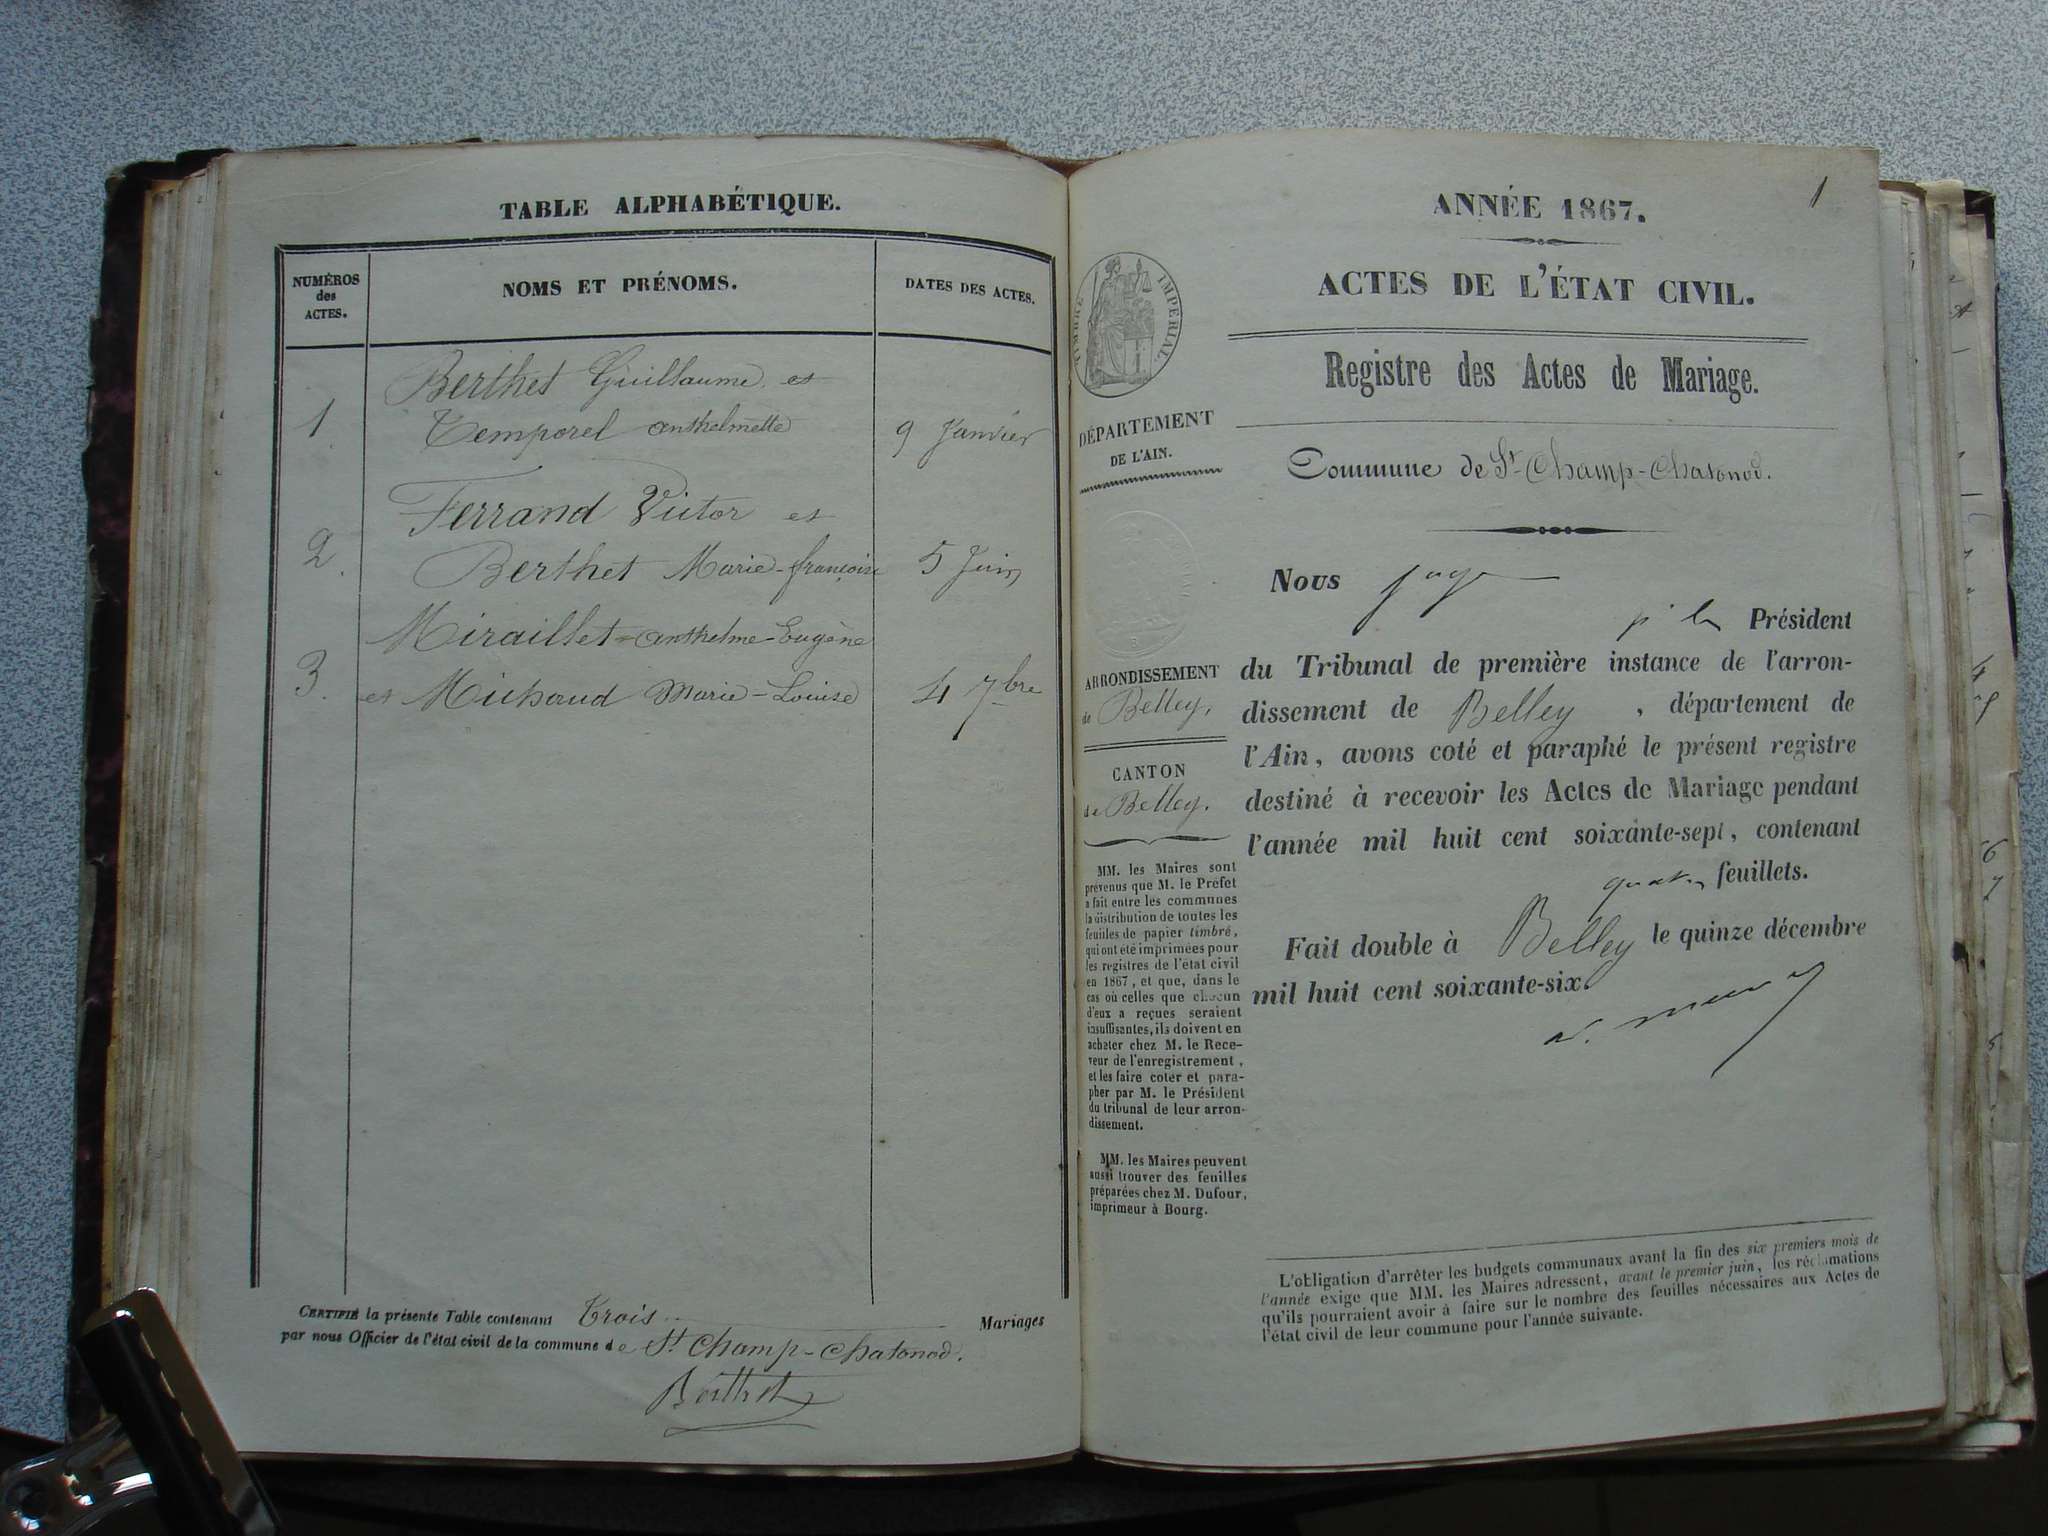 TABLE ALPHABÉTIQUE.
NUMÉROS
des
ACTES.
NOMS ET PRÉNOMS.
DATES DES ACTES.
Berthet Guillaume et
1. Temporel anthelmette 9 Janvier
Ferrand Victor et
2. Berthet Marie-françoise 5 Juin
Miraillet-anthelme-Eugène
3. et Michaud Marie-Louise 4 7bre
CERTIFIÉ la présente Table contenant Trois Mariages
par nous Officier de l'état civil de la commune de St Champ-Chatonod.
Berthet
1
ANNÉE 1867.
ACTES DE L'ÉTAT CIVIL.
Registre des Actes de Mariage.
TIMBRE IMPÉRIAL
DÉPARTEMENT
DE L'AIN.
Commune de St-Champ-Chatonod.
ARRONDISSEMENT
de Belley,
CANTON
de Belley.
MM. les Maires sont
prévenus que M. le Préfet
a fait entre les communes
la distribution de toutes les
feuilles de papier timbré,
qui ont été imprimées pour
les registres de l'état civil
en 1867, et que, dans le
cas où celles que chacun
d'eux a reçues seraient
insuffisantes, ils doivent en
acheter chez M. le Rece-
veur de l'enregistrement,
et les faire coter et para-
pher par M. le Président
du tribunal de leur arron-
dissement.
MM. les Maires peuvent
aussi trouver des feuilles
préparées chez M. Dufour,
imprimeur à Bourg.
Nous juge
p. le Président
du Tribunal de première instance de l'arron-
dissement de Belley, département de
l'Ain, avons coté et paraphé le présent registre
destiné à recevoir les Actes de Mariage pendant
l'année mil huit cent soixante-sept, contenant
quatre feuillets.
Fait double à Belley le quinze décembre
mil huit cent soixante-six.
L'obligation d'arrêter les budgets communaux avant la fin des six premiers mois de
l'année exige que MM. les Maires adressent, avant le premier juin, les réclamations
qu'ils pourraient avoir à faire sur le nombre des feuilles nécessaires aux Actes de
l'état civil de leur commune pour l'année suivante.